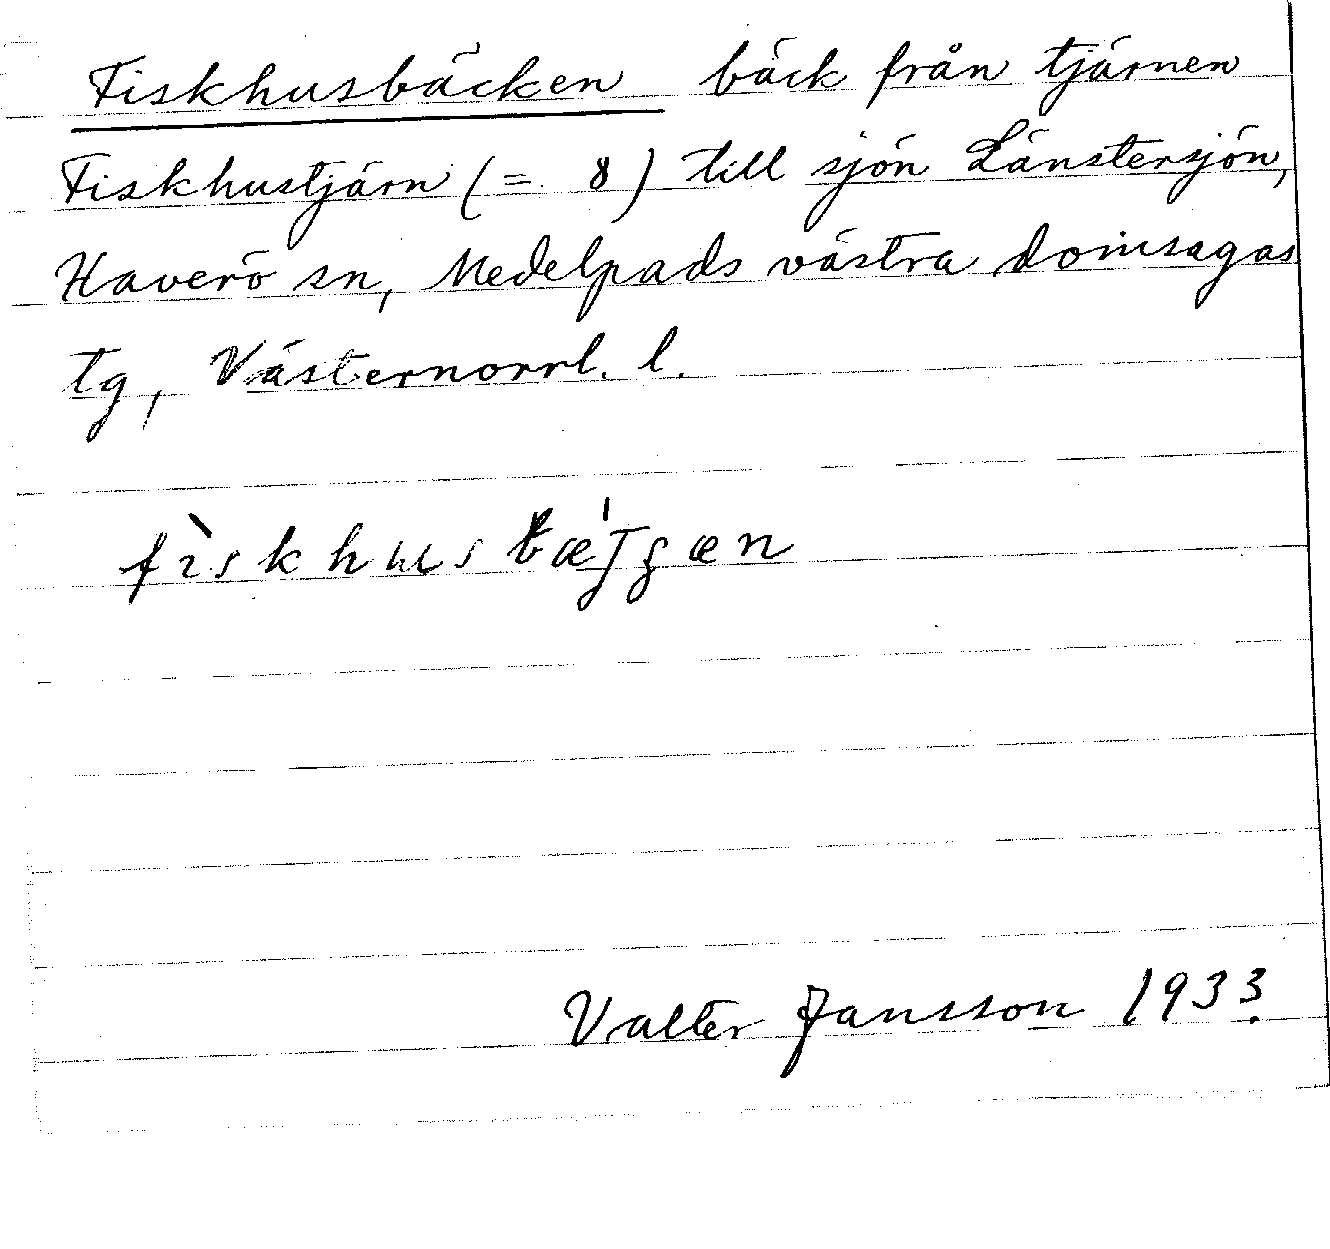 Fiskhusbäcken bäck från tjärnen
Fiskhustjärn (= 8) till sjön Länstersjön,
Haverö sn, Medelpads västra domsagas
tg, Västernorrl. l.
Valter Jansson 1933.